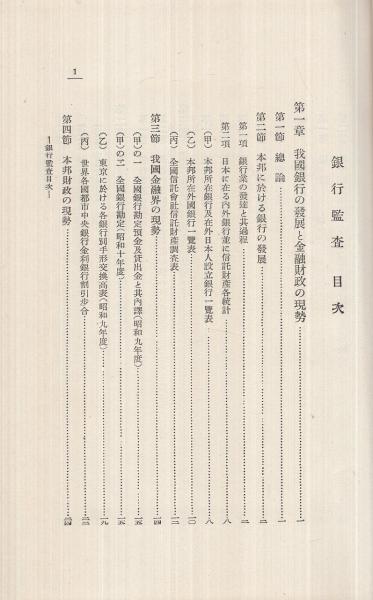 銀行監査目次
第一章 我國銀行の發展と金融財政の現勢…一
第一節 總論…一
第二節 本邦に於ける銀行の發展…二
第一項 銀行業の發達と其過程…二
第二項 日本に在る內外銀行並に信託財產各統計…八
(甲) 本邦所在銀行及在外日本人設立銀行一覽表…八
(乙) 本邦所在外國銀行一覽表…一〇
(丙) 全國信託會社信託財產調査表…一二
第三節 我國金融界の現勢…一四
(甲)の一 全國銀行勘定預金及貸出金と其內譯(昭和九年度)…一五
(甲)の二 全國銀行勘定(昭和十年度)…一五
(乙) 東京に於ける各銀行別手形交換高表(昭和九年度)…一九
(丙) 世界各國都市中央銀行金利銀行割引步合
第四節 本邦財政の現勢
—銀行監査目次—
1